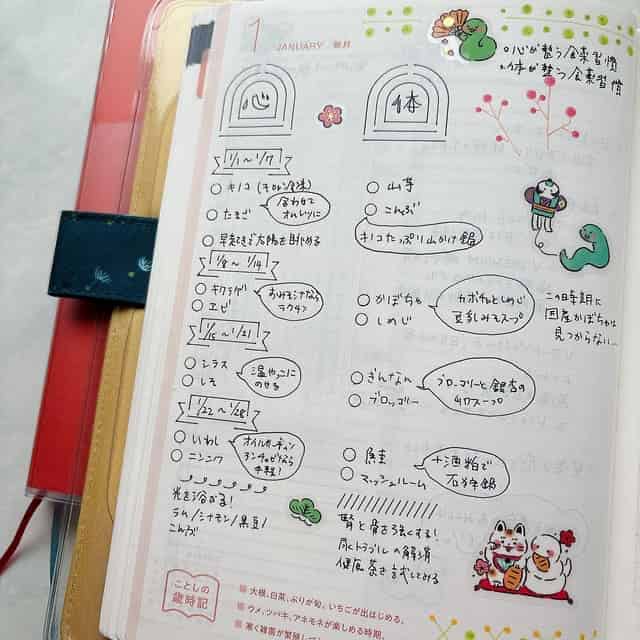 1 JANUARY / 睦月
○心が整う食薬習慣
○体が整う食薬習慣
心
体
1/1〜1/7
○キノコ
○たまご
合わせて
オムレツに
○早起きして太陽を眺める
○山芋
○こんぶ
キノコたっぷり山かけ鍋
1/8〜1/14
○キクラゲ
○エビ
おみそ汁なら
ラクチン
○かぼちゃ
○しめじ
カボチャとしめじ
豆乳みそスープ
この時期に
国産かぼちゃは
見つからない…
1/15〜1/21
○シラス
○しそ
温やっこに
のせる
○ぎんなん
○ブロッコリー
ブロッコリーと銀杏の
スープ
1/22〜1/28
○いわし
○ニンニク
オイルサーディン
アンチョビなら
手軽!
○鮭
○マッシュルーム
+酒粕で
石狩鍋
光を浴びる!
ラム/シナモン/黒豆/
こんぶ
腎と骨を強くする!
尿トラブルの解消
健康茶を試してみる
ことしの
歳時記
大根、白菜、ぶりが旬。いちごが出はじめる。
ウメ、ツバキ、アネモネが楽しめる時期。
寒く雑菌が繁殖し